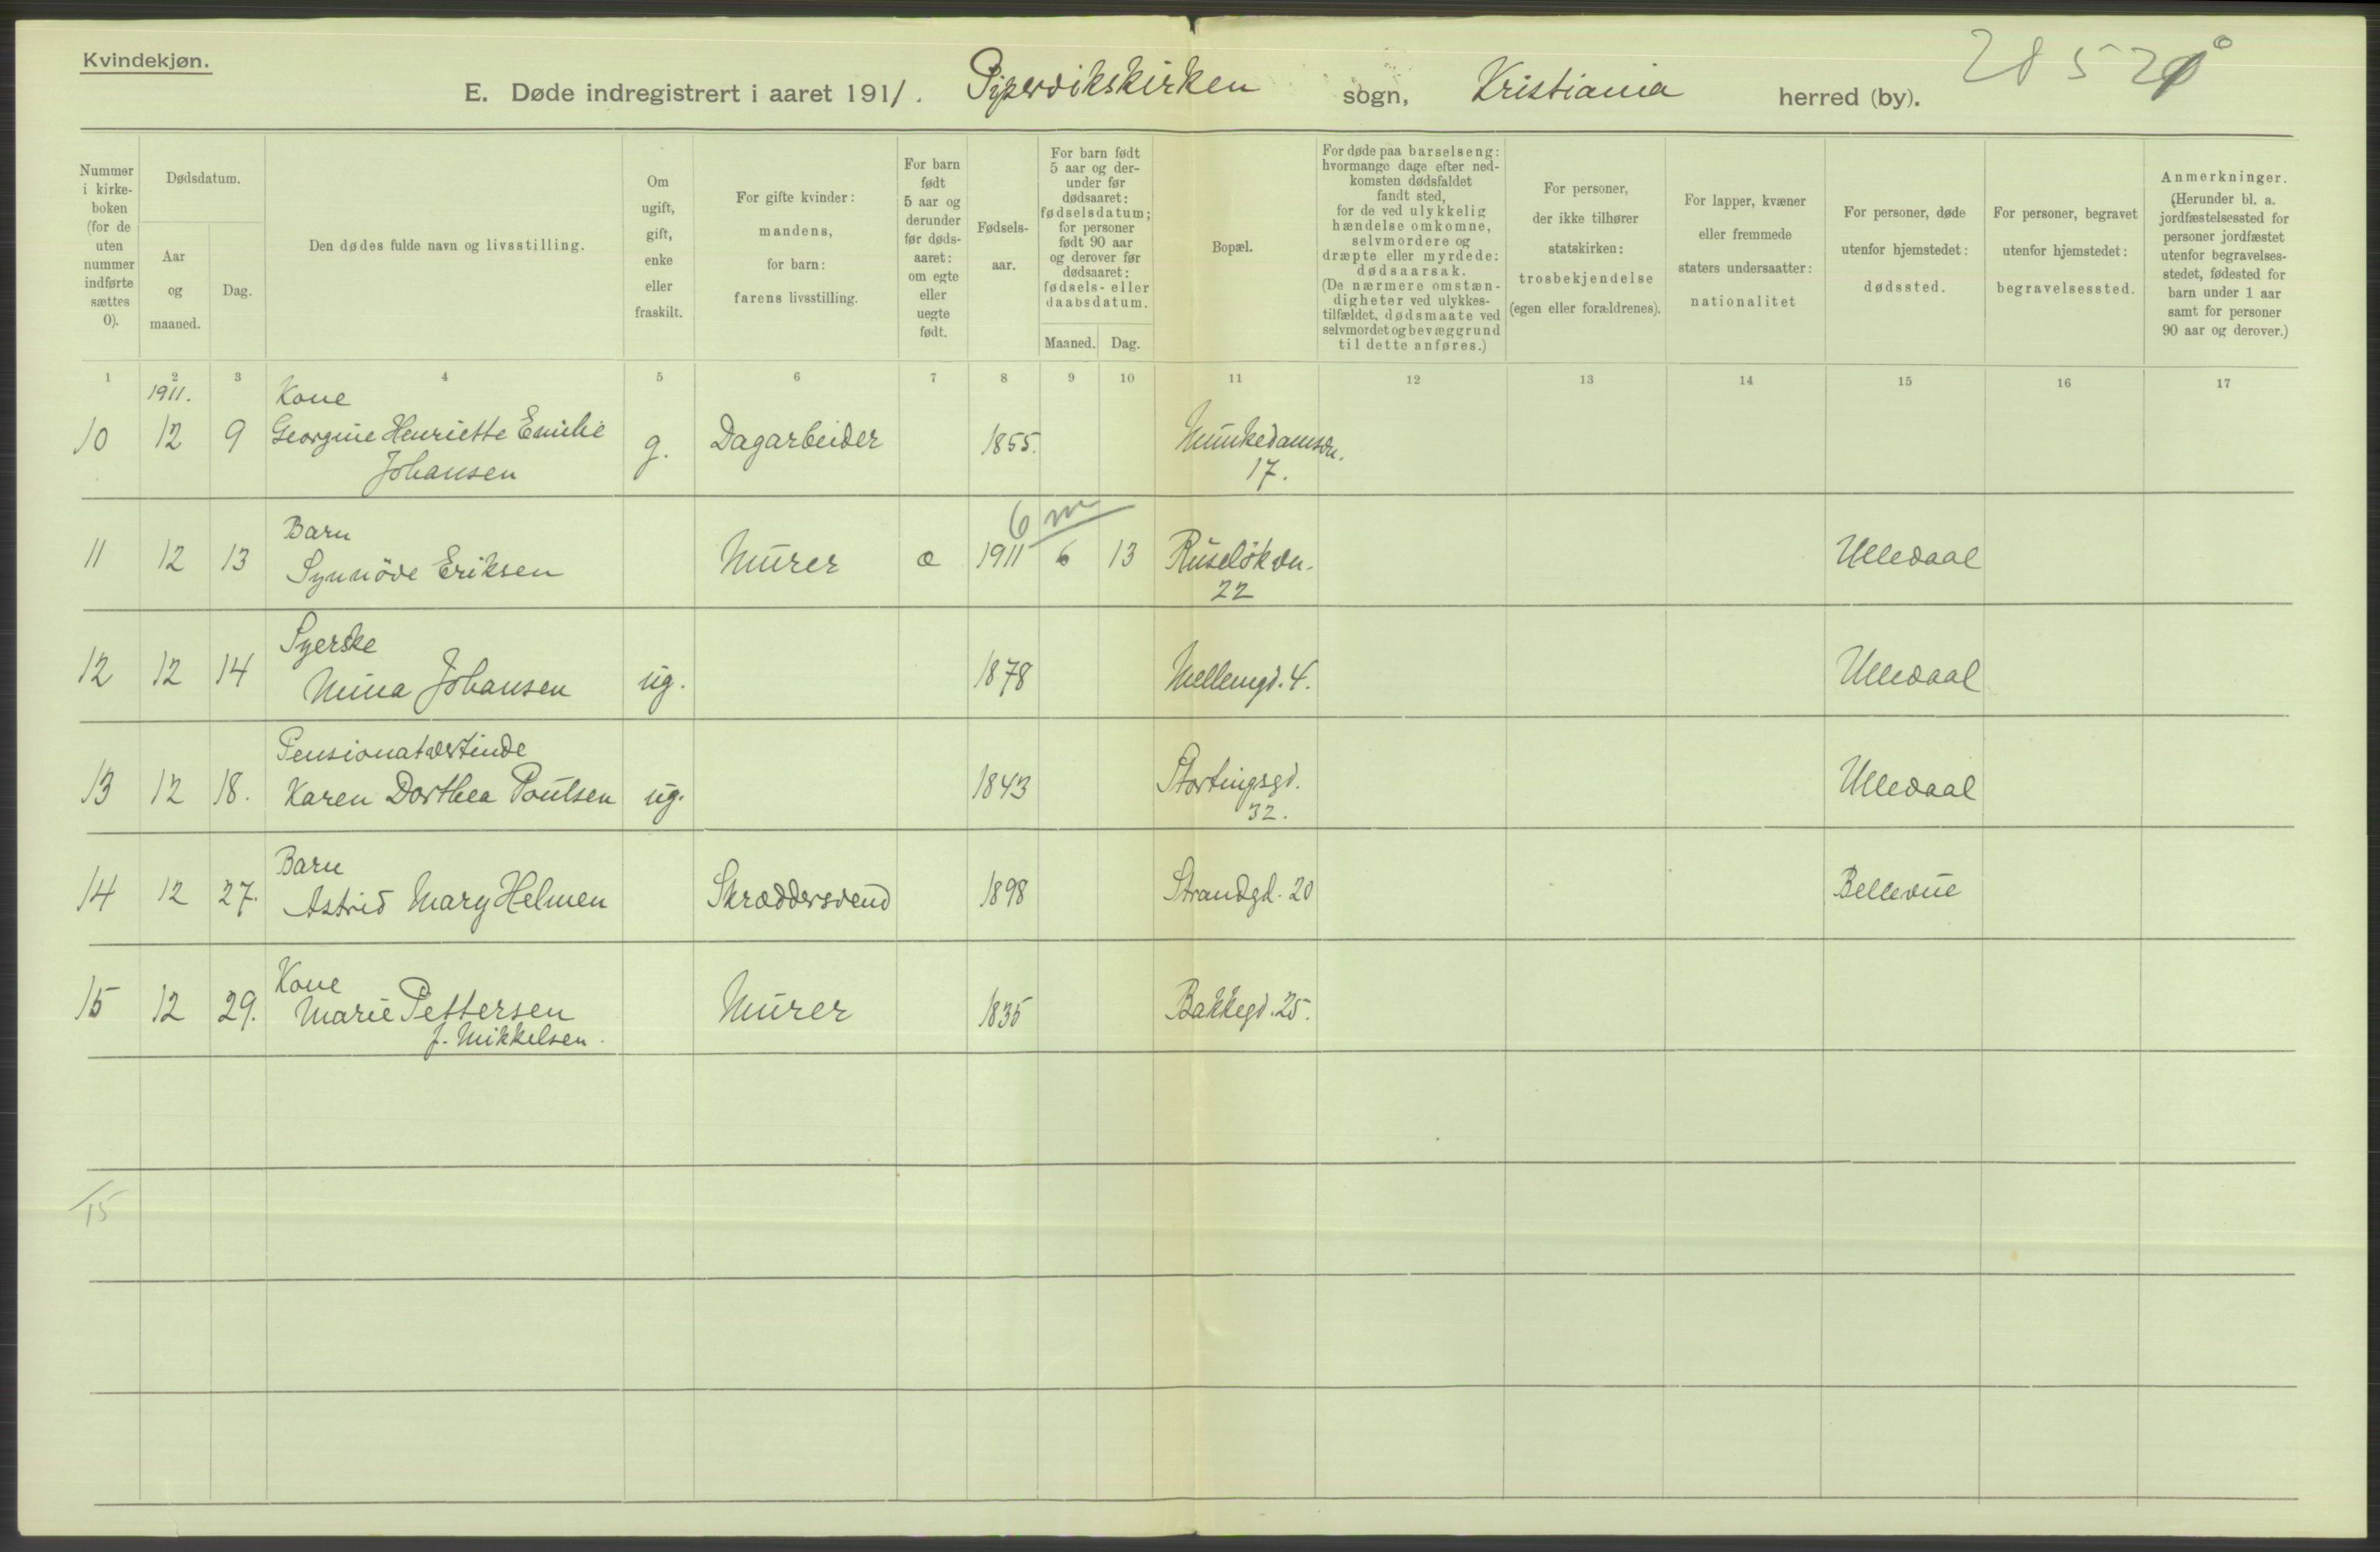 Kvindekjøn.
E. Døde indregistrert i aaret 1911. Pipervikskirken sogn, Kristiania herred (by).
Nummer
i kirke-
boken
(for de
uten
nummer
indførte
sættes
0).
Dødsdatum.
Aar
og
maaned.
Dag.
Den dødes fulde navn og livsstilling.
Om
ugift,
gift,
enke
eller
fraskilt.
For gifte kvinder:
mandens,
for barn:
farens livsstilling.
For barn
født
5 aar og
derunder
før døds-
aaret:
om egte
eller
uegte
født.
Fødsels-
aar.
For barn født
5 aar og der-
under før
dødsaaret:
fødselsdatum;
for personer
født 90 aar
og derover før
dødsaaret:
fødsels- eller
daabsdatum.
Maaned. Dag.
Bopæl.
For døde paa barselseng:
hvormange dage efter ned-
komsten dødsfaldet
fandt sted,
for de ved ulykkelig
hændelse omkomne,
selvmordere og
dræpte eller myrdede:
dødsaarsak.
(De nærmere omstæn-
digheter ved ulykkes-
tilfældet, dødsmaate ved
selvmordet og bevæggrund
til dette anføres.)
For personer,
der ikke tilhører
statskirken:
trosbekjendelse
(egen eller forældrenes).
For lapper, kvæner
eller fremmede
staters undersaatter:
nationalitet
For personer, døde
utenfor hjemstedet:
dødssted.
For personer, begravet
utenfor hjemstedet:
begravelsessted.
Anmerkninger.
(Herunder bl. a.
jordfæstelsessted for
personer jordfæstet
utenfor begravelses-
stedet, fødested for
barn under 1 aar
samt for personer
90 aar og derover.)
1 2 3 4 5 6 7 8 9 10 11 12 13 14 15 16 17
1911. Kone
10 12 9 Georgine Henriette Emilie g. Dagarbeider 1855. Munkedamsvn.
Johansen 17.
6 m
Barn
11 12 13 Synnöve Eriksen Murer e 1911 6 13 Ruselökvn. Ulledaal
22
Syerske
12 12 14 Mina Johansen ug. 1878 Mellemgd. 4. Ulledaal
Pensionatværtinde
13 12 18. Karen Dorthea Poulsen ug. 1843 Stortingsgd. Ulledaal
32.
Barn
14 12 27. Astrid Mary Helmen Skræddersvend 1898 Strandgd. 20 Bellevue
Kone
15 12 29. Marie Pettersen Murer 1835 Bakkegd. 25.
f. Mikkelsen.
15